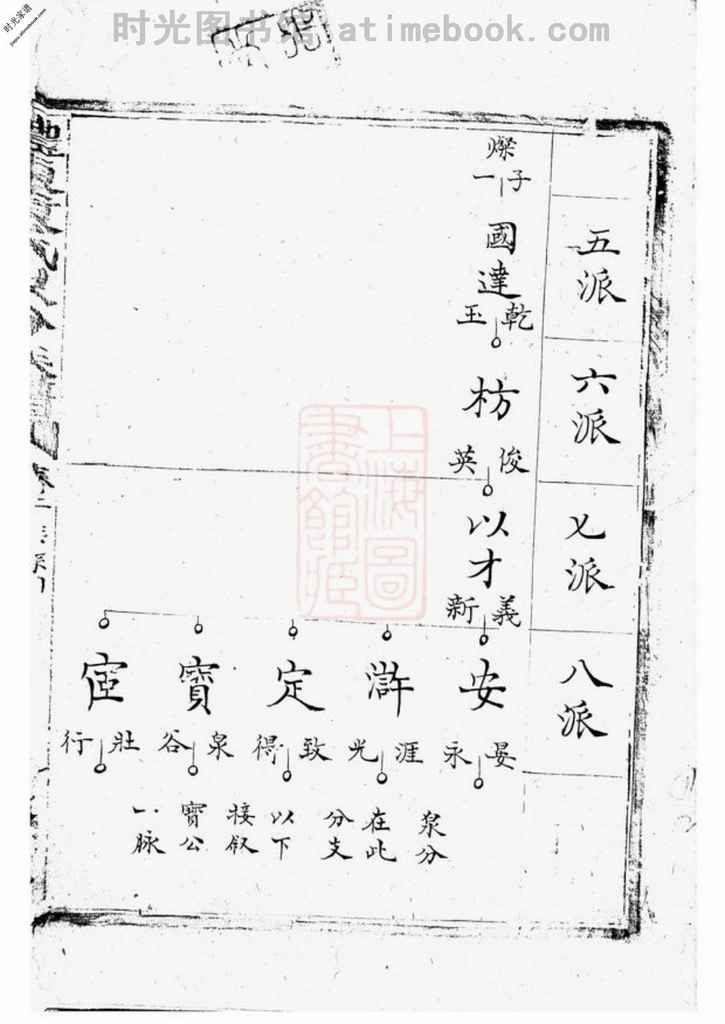 时光图书馆 atimebook.com
时光家谱
五派
六派
七派
八派
燦子一
國達
乾玉
枋
俊英
以才
義新
安
滸
定
寳
宧
晏永
涯光
致得
泉谷
壯行
泉分
在此
分支
以下
接叙
寳公
一脉
上海圖
書館藏